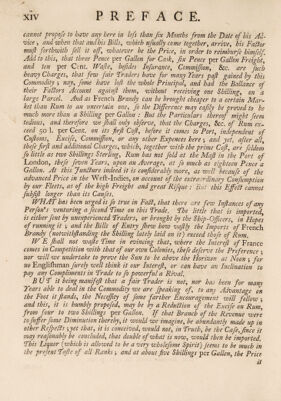 xiv PREFACE.
cannot propose to have any here in less than six Months from the Date of his Ad-
vice, and when that and his Bills, which usually come together, arrive, his Factor
must forthwith sell it off, whatever be the Price, in order to reimburse himself.
Add to this, that three Pence per Gallon for Cask, six Pence per Gallon Freight,
and ten per Cent. Waste, besides Insurance, Commission, &c. are such
heavy Charges, that few fair Traders have for many Years past gained by this
Commodity; nay, some have lost the whole Principal, and had the Ballance of
their Factors Account against them, without receiving one Shilling, on a
large Parcel. And as French Brandy can be brought cheaper to a certain Mar-
ket than Rum to an uncertain one, so the Difference may easily be proved to be
much more than a Shilling per Gallon: But the Particulars thereof might seem
tedious, and therefore we shall only observe, that the Charges, &c. of Rum ex-
ceed 50 l. per Cent. on its first Cost, before it comes to Port, independent of
Customs, Excise, Commission, or any other Expences here; and yet, after all,
these first and additional Charges, which, together with the prime Cost, are seldom
so little as two Shillings Sterling, Rum has not sold at the Mast in the Port of
London, these seven Years, upon an Average, at so much as eighteen Pence a
Gallon. At this Juncture indeed it is considerably more, as well because of the
advanced Price in the West-Indies, on account of the extraordinary Consumption
by our Fleets, as of the high Freight and great Risque: But this Effect cannot
subsist longer than its Causes.
WHAT has been urged is so true in Fact, that there are few Instances of any
Person's venturing a second Time on this Trade. The little that is imported,
is either sent by unexperienced Traders, or brought by the Ship-Officers, in Hopes
of running it; and the Bills of Entry shew how vastly the Imports of French
Brandy (notwithstanding the Shilling lately laid on it) exceed those of Rum.
WE shall not waste Time in evincing that, where the Interest of France
comes in Competition with that of our own Colonies, these deserve the Preference;
nor will we undertake to prove the Sun to be above the Horizon at Noon; for
no Englishman surely well think it our Interest, or can have an Inclination to
pay any Compliments in Trade to so powerful a Rival.
BUT it being manifest that a fair Trader is not, nor has been for many
Years able to deal in the Commodity we are speaking of, to any Advantage on
the Foot it stands, the Necessity of some farther Encouragement will follow;
and this, it is humbly proposed, may be by a Reduction of the Excise on Rum,
from four to two Shillings per Gallon. If that Branch of the Revenue were
to suffer some Diminution thereby, it would we imagine, be abundantly made up in
other Respects; yet that, it is conceived, would not, in Truth, be the Case, since it
may reasonably be concluded, that double of what is now, would then be imported.
This Liquor (which is allowed to be a very wholesome Spirit) seems to be much to
the present Taste of all Ranks; and at about five Shillings per Gallon, the Price
it